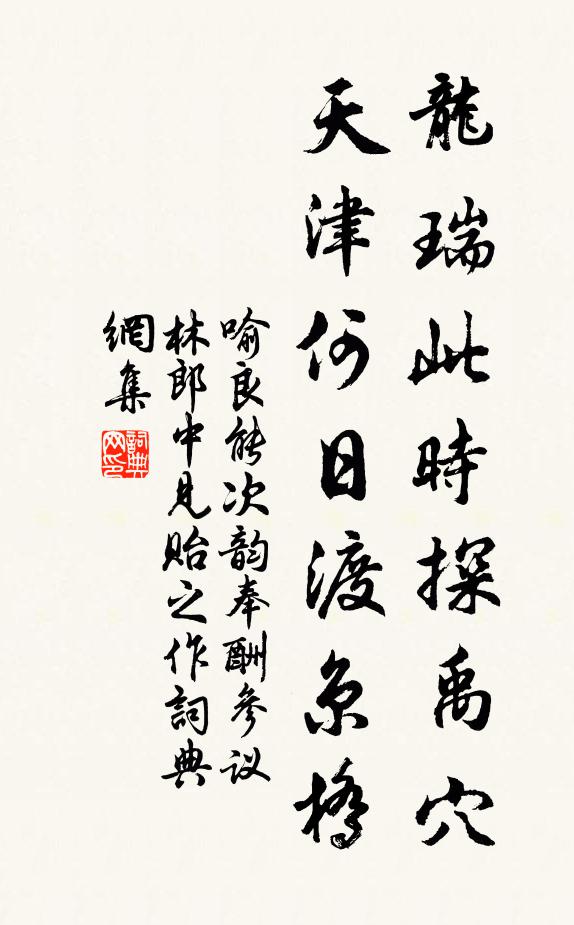 龍瑞此時探禹穴
天津何日渡魚橋
喻良能次韵奉酬參议
林郎中見貽之作詞典
網集
詞典网印